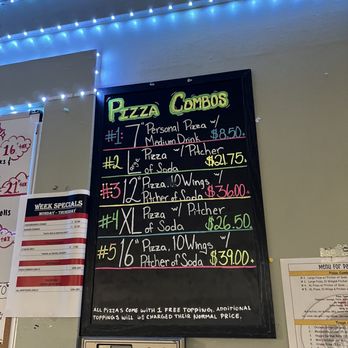 PIZZA COMBOS
#1: 7" Personal Pizza w/
Medium Drink $8.50.
#2 Lrg Pizza w/ Pitcher
of Soda $21.75.
#3 12" Pizza, 10 Wings w/
Pitcher of Soda $36.00.
#4 XL Pizza w/ Pitcher
of Soda $26.50.
#5 16" Pizza, 10 Wings w/
Pitcher of Soda $39.00.
ALL PIZZA'S COME WITH 1 FREE TOPPING, ADDITIONAL
TOPPINGS WILL BE CHARGED THEIR NORMAL PRICE.
WEEK SPECIALS
MONDAY - THURSDAY
16"
21"
MENU FOR